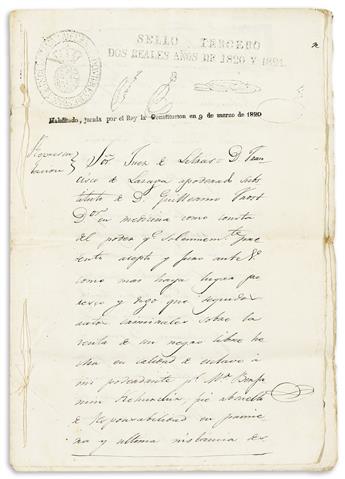 SELLO TERCERO
DOS REALES AÑOS DE 1820 Y 1821.
Habilitado, jurada por el Rey la Constitucion en 9 de marzo de 1820
Sor Juez de Letras D. Fran
cisco de apoderado subs
tituto de D. Guillermo
Dor en medicina como consta
del poder q. solemnemte pre
sento acepto y juro ante V.
como mas haya lugar pa
rezco y digo que seguidos
autos sobre la
venta de un negro libre he
cha en calidad de esclavo á
mi poderdante pr Mr Benja
min fué absuelto
de responsabilidad en prime
ra y ultima instancia